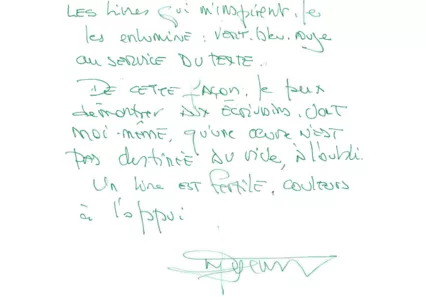 Les livres qui m'inspirent, je
les enlumine : vert, bleu, rouge
au service du texte.
De cette façon, je peux
démontrer aux écrivains, dont
moi-même, qu'une œuvre n'est
pas destinée au vide, à l'oubli.
Un livre est fertile, couleurs
à l'appui.